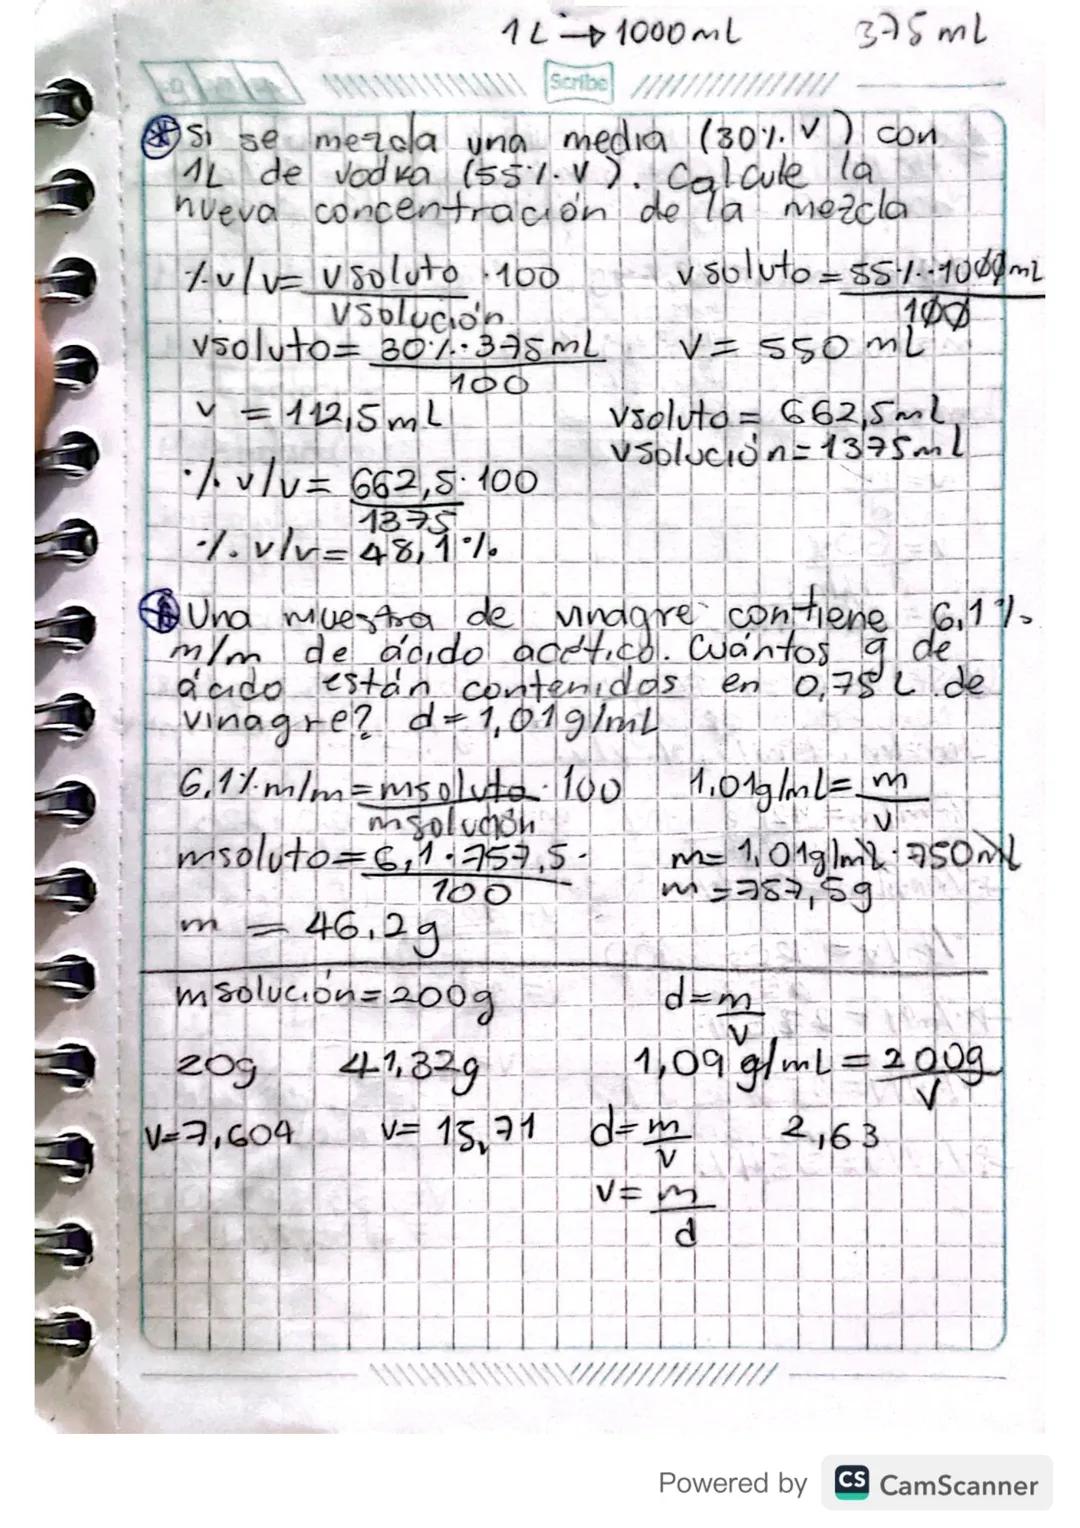 1L → 1000mL 375 mL
Scribe
Si se mezcla una media (30%. V) con
1L de vodka (55%. V). Calcule la
nueva concentración de la mezcla
%v/v= vsoluto · 100 vsoluto = 55%·1000mL
vsolución 100
vsoluto= 30%·375mL v= 550 mL
100
v = 112,5mL vsoluto= 662,5mL
vsolución=1375mL
%v/v= 662,5·100
1375
%v/v= 48,1%
Una muestra de vinagre contiene 6,1%
m/m de ácido acético. Cuántos g de
ácido están contenidos en 0,75 L de
vinagre? d=1,01g/mL
6,1%m/m=msoluto·100 1.01g/mL= m
msolución v
msoluto=6,1·757,5· m= 1,01g/mL·750mL
100 m=757,5g
m = 46.2g
msolución=200g d=m
v
20g 41,32g 1,09 g/mL = 200g
v
v=7,604 v= 15,71 d=m 2,63
v
v= m
d
Powered by CS CamScanner